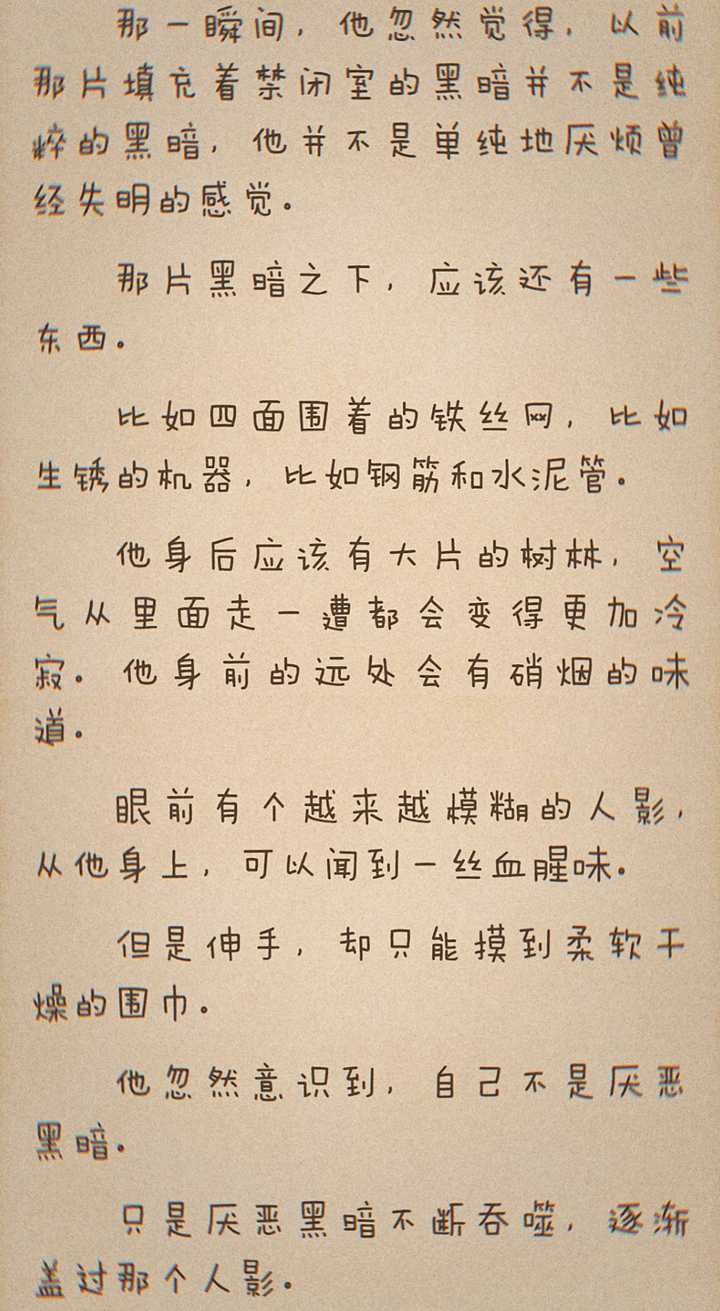 那一瞬间，他忽然觉得，以前
那片填充着禁闭室的黑暗并不是纯
粹的黑暗，他并不是单纯地厌烦曾
经失明的感觉。
那片黑暗之下，应该还有一些
东西。
比如四面围着的铁丝网，比如
生锈的机器，比如钢筋和水泥管。
他身后应该有大片的树林，空
气从里面走一遭都会变得更加冷
寂。他身前的远处会有硝烟的味
道。
眼前有个越来越模糊的人影，
从他身上，可以闻到一丝血腥味。
但是伸手，却只能摸到柔软干
燥的围巾。
他忽然意识到，自己不是厌恶
黑暗。
只是厌恶黑暗不断吞噬，逐渐
盖过那个人影。